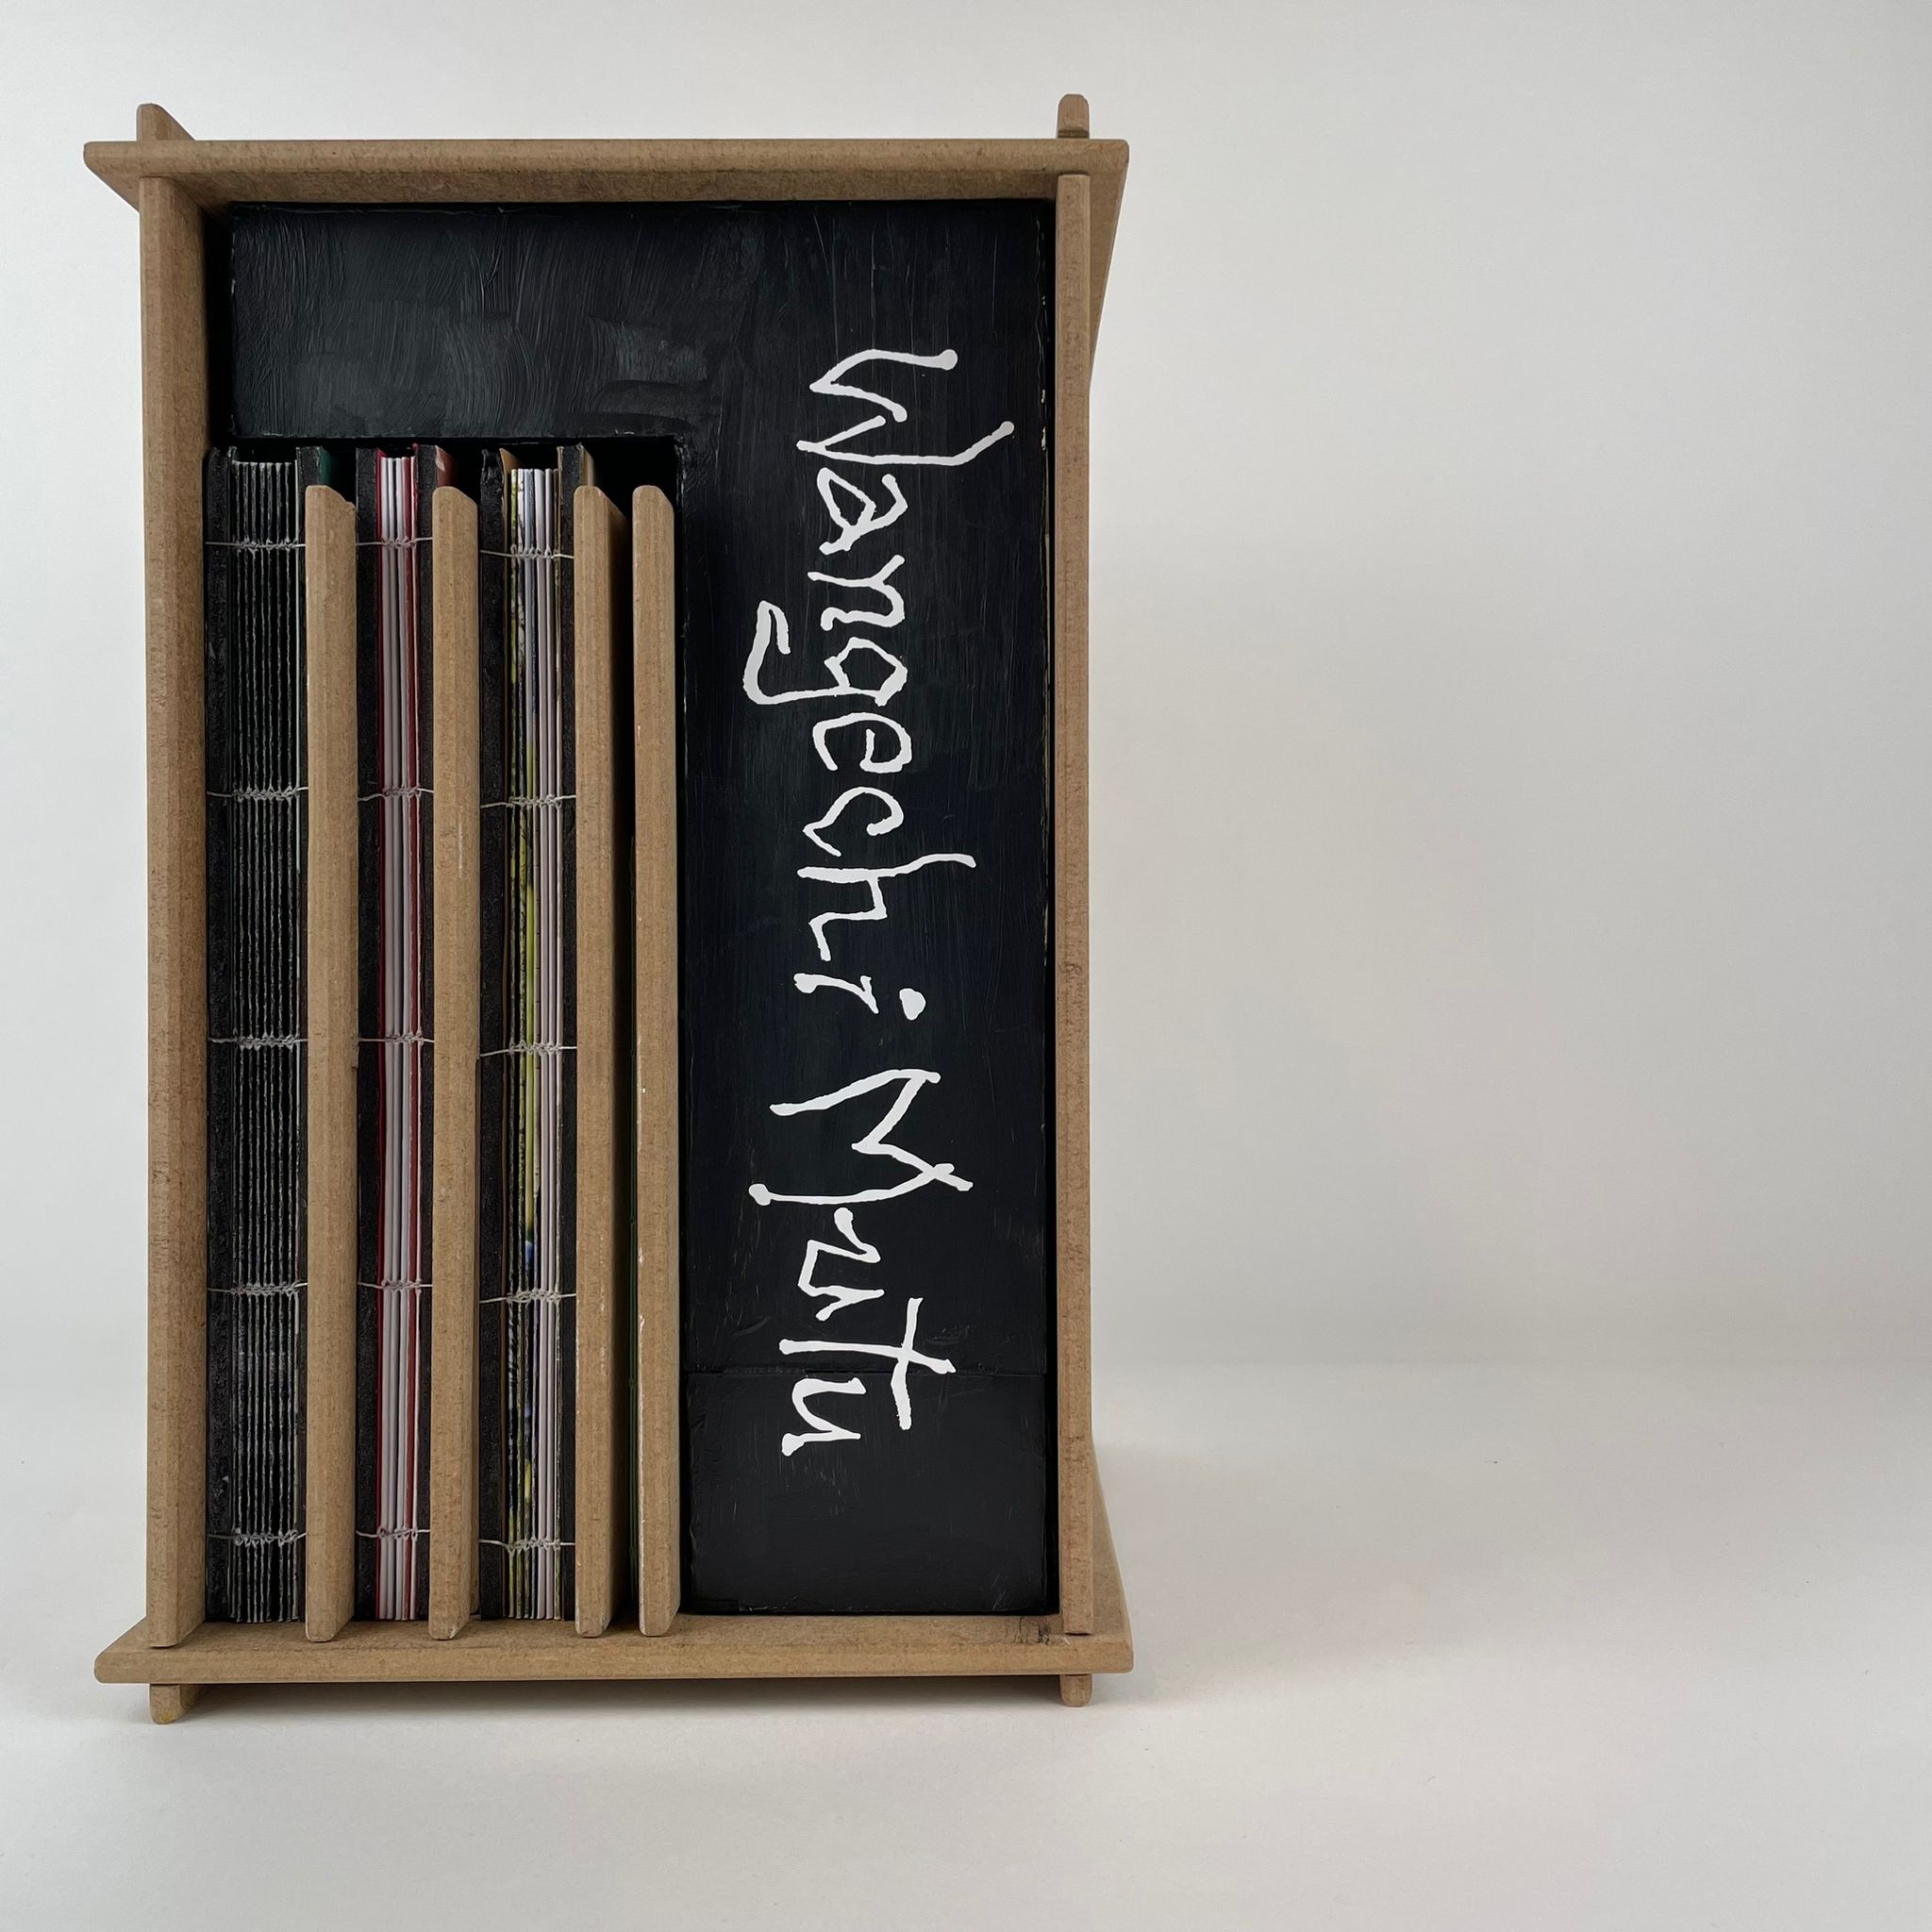 Wangechi Mutu